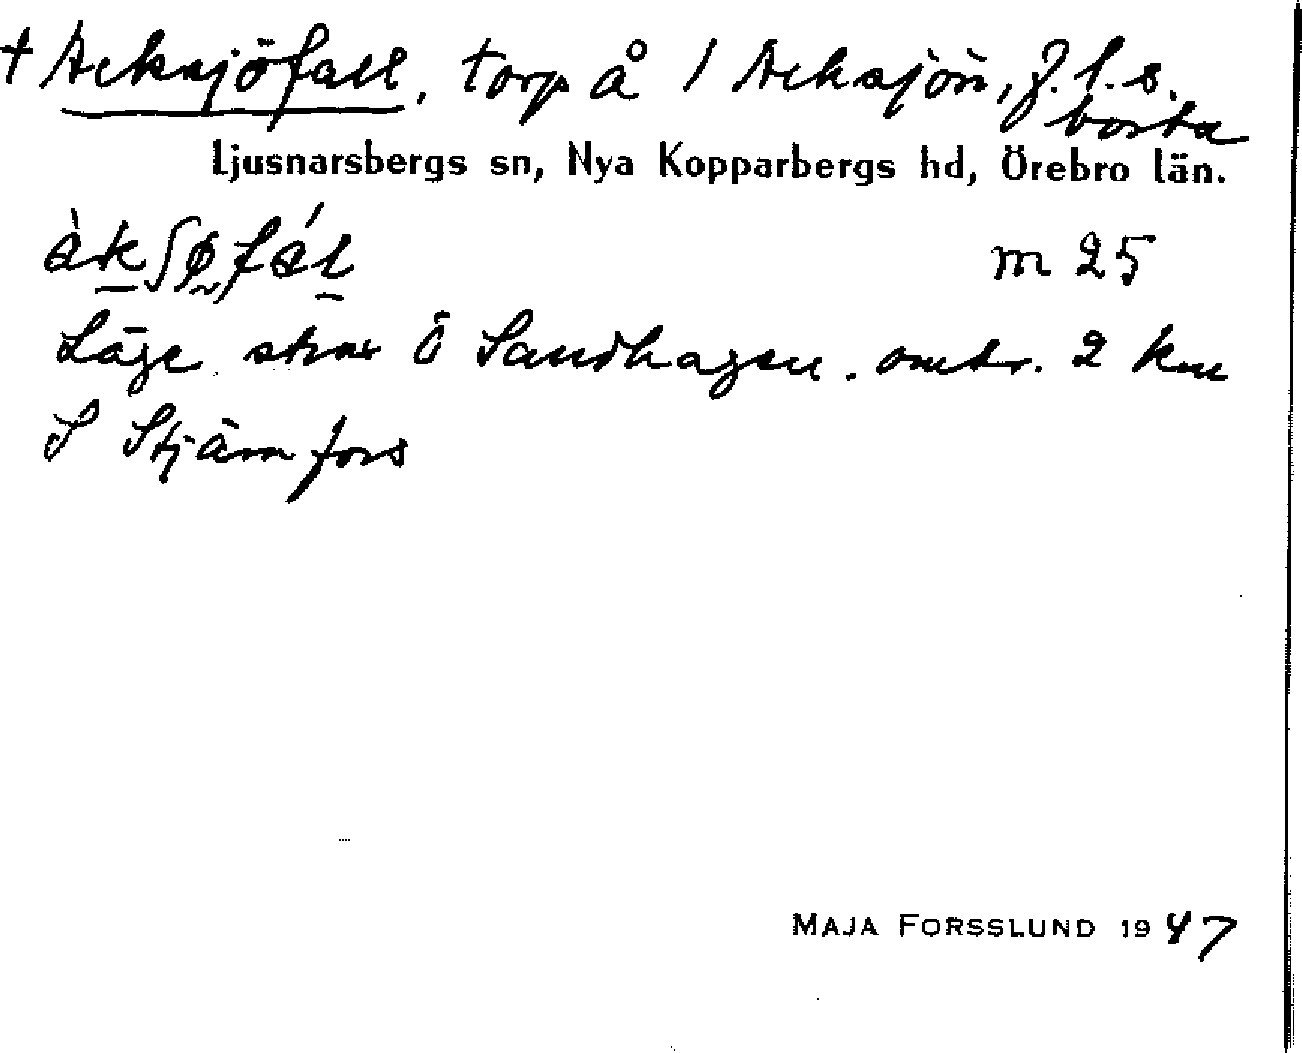 † Acksjöfall, torp å 1 Acksjön, f.l.s. borta
Ljusnarsbergs sn, Nya Kopparbergs hd, Örebro län.
àkʃøfál m 25
Läge strax Ö Sandhagen. omkr. 2 km
S Stjärnfors
MAJA FORSSLUND 1947